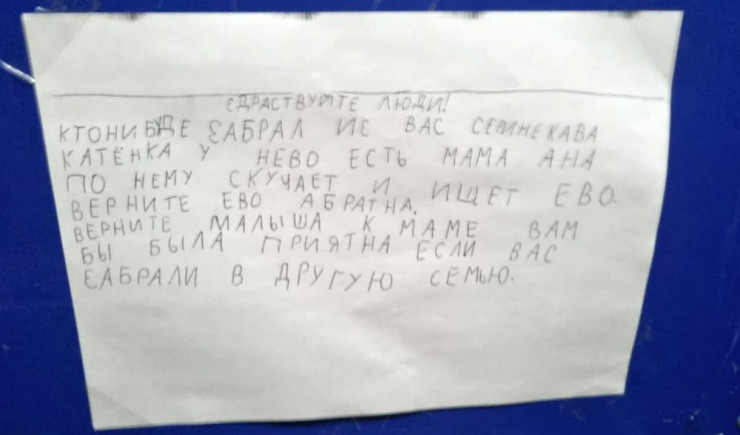 ЕДРАСТВУЙТЕ ЛЮДИ!
КТОНИБУДЕ ЕАБРАЛ ИЕ ВАС СЕРИНЕКАВА
КАТЁНКА У НЕВО ЕСТЬ МАМА АНА
ПО НЕМУ СКУЧАЕТ И ИЩЕТ ЕВО.
ВЕРНИТЕ ЕВО АБРАТНА.
ВЕРНИТЕ МАЛЫША К МАМЕ ВАМ
БЫ БЫЛА ПРИЯТНА ЕСЛИ ВАС
ЕАБРАЛИ В ДРУГУЮ СЕМЬЮ.